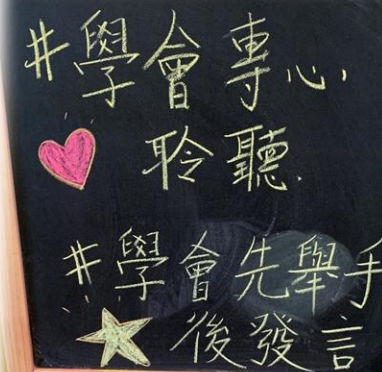 #學會專心
聆聽.
#學會先舉手
後發言